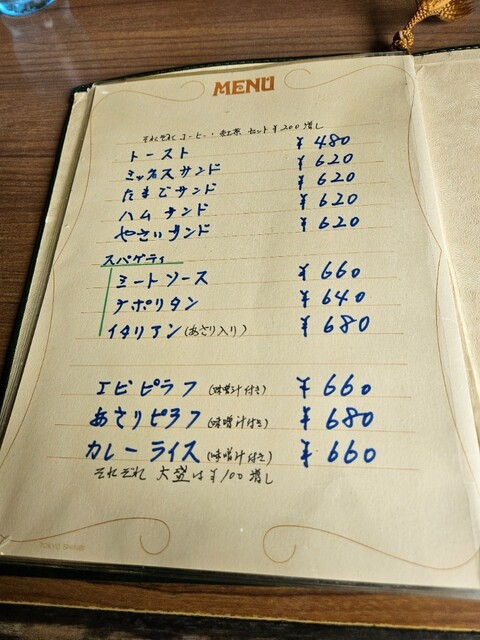 MENU
それぞれコーヒー・紅茶 セット¥200増し
トースト ¥480
ミックスサンド ¥620
たまごサンド ¥620
ハムサンド ¥620
やさいサンド ¥620
スパゲティ
ミートソース ¥660
ナポリタン ¥640
イタリアン(あさり入り) ¥680
エビピラフ(味噌汁付き) ¥660
あさりピラフ(味噌汁付き) ¥680
カレーライス(味噌汁付き) ¥660
それぞれ 大盛は¥100増し
TOKYO